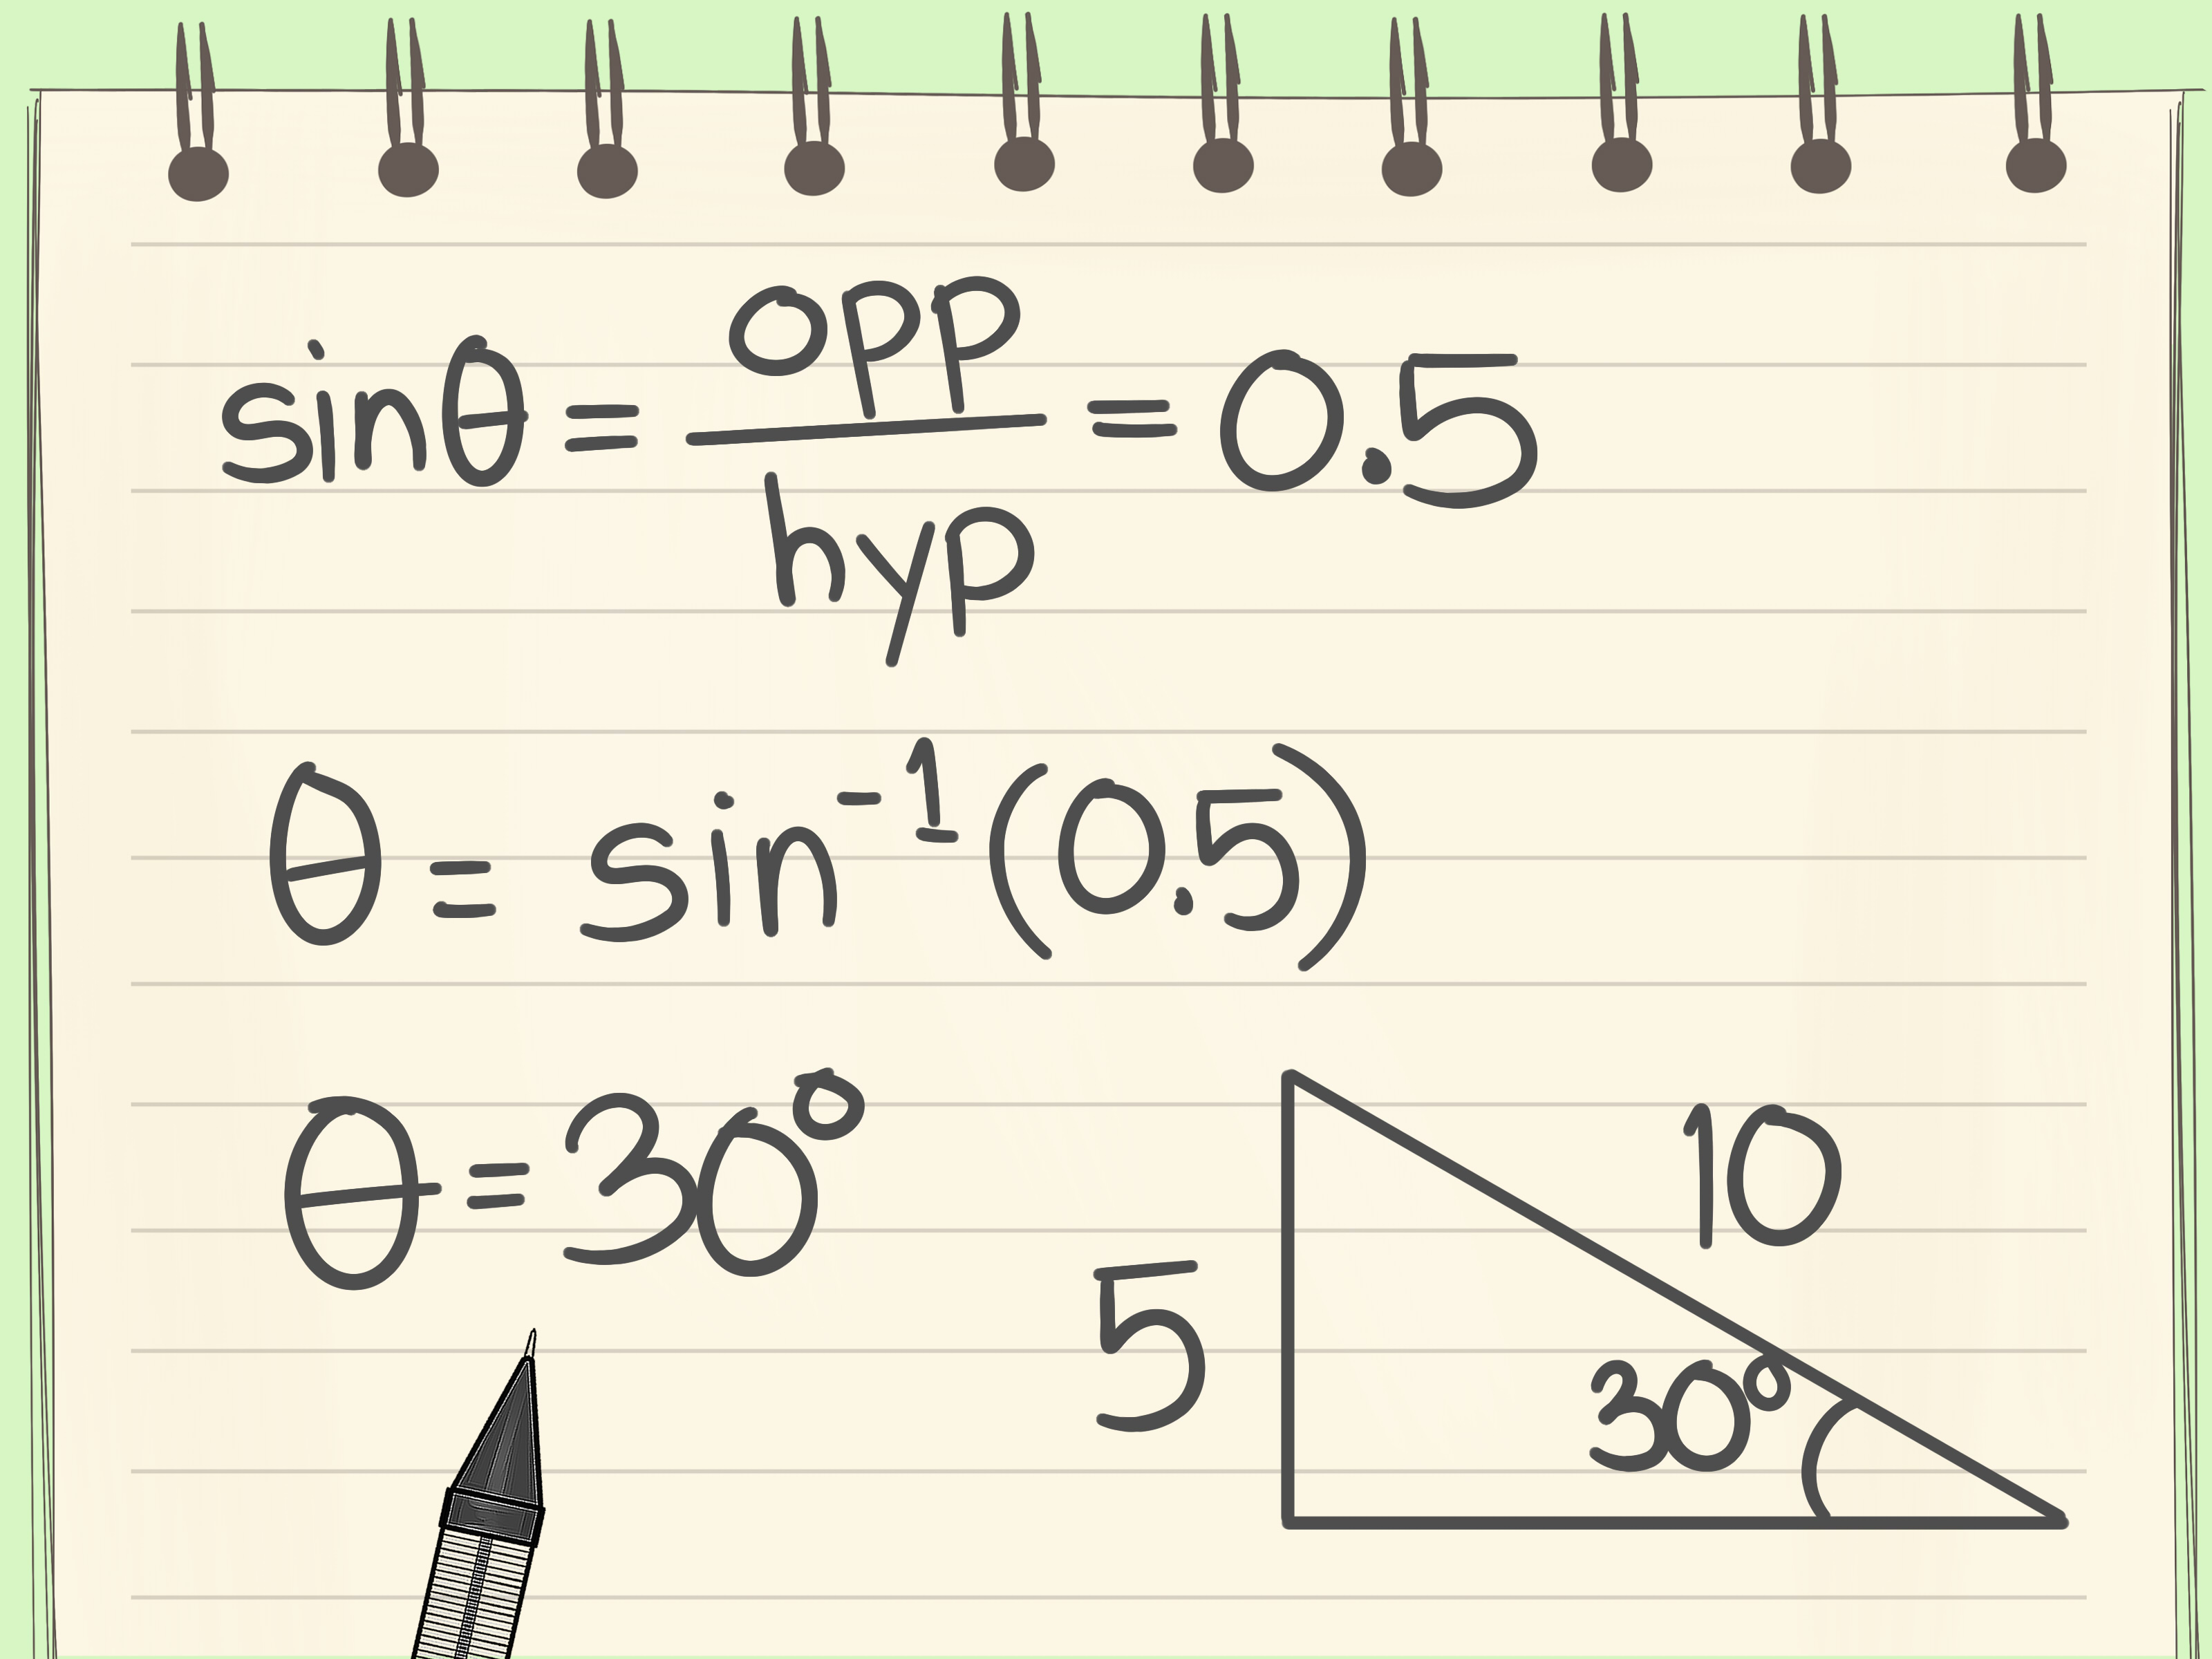 sinθ = opp/hyp = 0.5
θ = sin⁻¹(0.5)
θ = 30°
10
5
30°